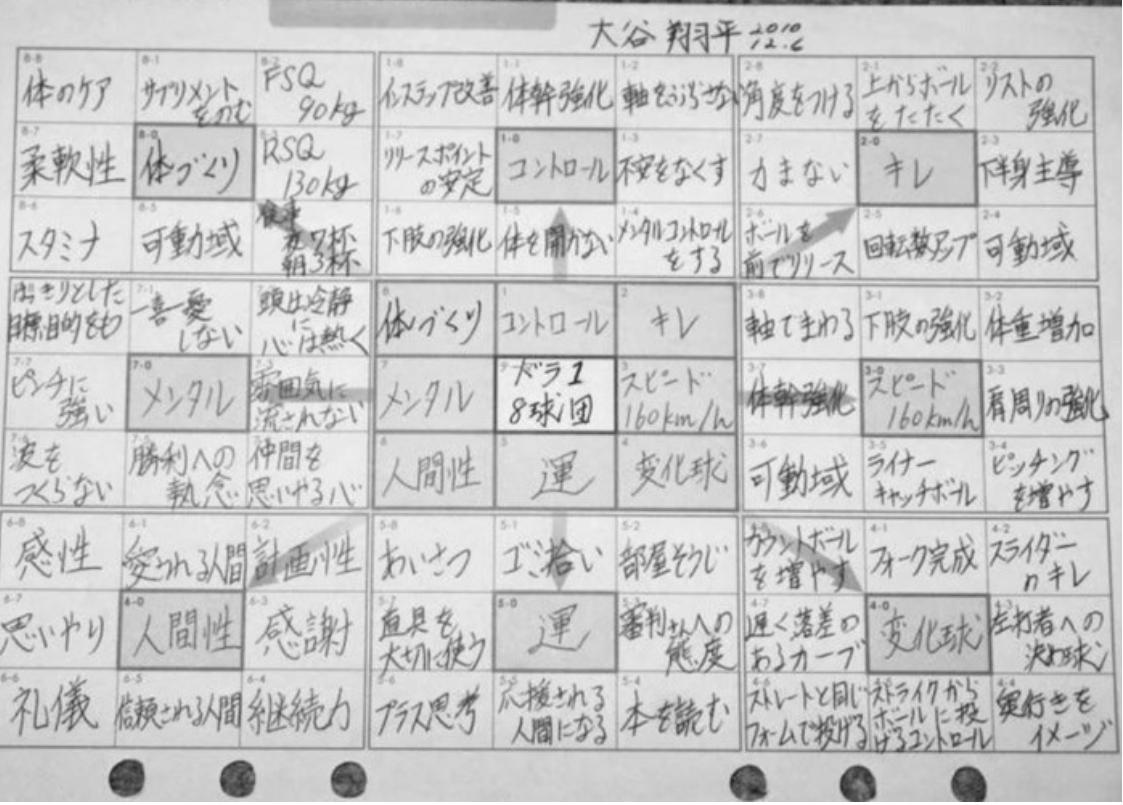 大谷 翔平 2010
12.6
8-8
体のケア
8-1
サプリメント
をのむ
8-2
FSQ
90kg
8-7
柔軟性
8-0
体づくり
8-3
RSQ
130kg
8-6
スタミナ
8-5
可動域
食事
夜7杯
朝3杯
1-8
インステップ改善
1-1
体幹強化
1-2
軸をぶらさない
1-7
リリースポイント
の安定
1-0
コントロール
1-3
不安をなくす
1-6
下肢の強化
1-5
体を開かない
1-4
メンタルコントロール
をする
2-8
角度をつける
2-1
上からボール
をたたく
2-2
リストの
強化
2-7
力まない
2-0
キレ
2-3
下半身主導
2-6
ボールを
前でリリース
2-5
回転数アップ
2-4
可動域
はっきりとした
目標、目的をもつ
7-1
一喜一憂
しない
頭は冷静
に
心は熱く
7-7
ピンチに
強い
7-0
メンタル
7-3
雰囲気に
流されない
7-6
波を
つくらない
7-5
勝利への
執念
仲間を
思いやる心
8
体づくり
1
コントロール
2
キレ
7
メンタル
9
ドラ1
8球団
3
スピード
160km/h
6
人間性
5
運
4
変化球
3-8
軸でまわる
3-1
下肢の強化
3-2
体重増加
3-7
体幹強化
3-0
スピード
160km/h
3-3
肩周りの強化
3-6
可動域
3-5
ライナー
キャッチボール
3-4
ピッチング
を増やす
6-8
感性
6-1
愛される人間
6-2
計画性
6-7
思いやり
6-0
人間性
6-3
感謝
6-6
礼儀
6-5
信頼される人間
6-4
継続力
5-8
あいさつ
5-1
ゴミ拾い
5-2
部屋そうじ
5-7
道具を
大切に使う
5-0
運
5-3
審判さんへの
態度
5-6
プラス思考
5-5
応援される
人間になる
5-4
本を読む
4-8
カウントボール
を増やす
4-1
フォーク完成
4-2
スライダー
のキレ
4-7
遅く落差の
あるカーブ
4-0
変化球
4-3
左打者への
決め球
4-6
ストレートと同じ
フォームで投げる
ストライクから
ボールに投
げるコントロール
4-4
奥行きを
イメージ